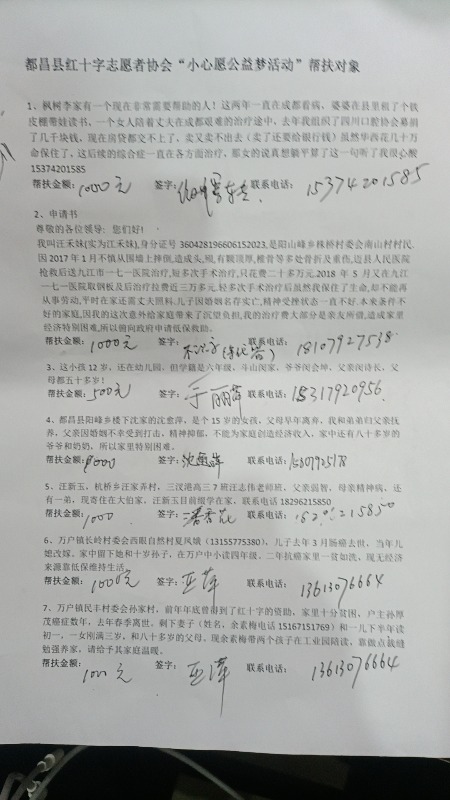 都昌县红十字志愿者协会“小心愿公益梦活动”帮扶对象
1、枫树李家有一个现在非常需要帮助的人！这两年一直在成都看病，婆婆在县里租了个铁
皮棚带娃读书，一个女人陪着丈夫在成都艰难的治疗途中，去年我组织了四川口腔协会募捐
了几千块钱，现在房贷都交不上了，卖又卖不出去（卖了还要给银行钱）虽然华西花几十万
命保住了，这后续的综合症一直在各方面治疗，那女的说真想躺平算了这一句听了我很心酸
15374201585
帮扶金额：1000元 签字： 联系电话：15374201585
2、申请书
尊敬的各位领导：您们好！
我叫汪禾妹(实为江禾妹),身份证号 360428196606152023,是阳山峰乡株桥村委会南山村村民.
因 2017 年 1 月不慎从围墙上摔倒,造成头,颈,有颞顶厚,椎骨等多处骨折及重伤,迈县人民医院
抢救后送九江市一七一医院治疗,短多次手术治疗,只花费二十多万元.2018 年 5 月又在九江
一七一医院取钢板及后治疗拉费近三万多元,轻多次手术治疗后虽然我保住了生命,却不能再
从事劳动,平时在家还需丈夫照料.儿子因婚姻名存实亡,精神受挫状态一直不好.本来条件不
好的家庭,因我的这次意外给家庭带来了沉望负担,我的治疗费大部分是亲友所借,造成家里
经济特别困难,所以俯向政府申请低保救助。
帮扶金额：1000元 签字： 联系电话：18107927538
3、这小孩 12 岁，还在幼儿园，但学籍是六年级，斗山闵家，爷爷闵会坤，父亲闵诗长，父
母都五十多岁！
帮扶金额：500元 签字：于丽萍 联系电话：15317920956
4、都昌县阳峰乡楼下沈家的沈愈萍，是个 15 岁的女孩，父母早年离弃，我和弟弟归父亲抚
养，父亲因婚姻不幸受到打击，精神抑郁，不能为家庭创造经济收入，家中还有八十多岁的
爷爷和奶奶，所以家里特别困难。
帮扶金额：1000 签字： 联系电话：
5、汪新玉，杭桥乡汪家弄村，三汊港高三 7 班汪志伟老师班，父亲弱智，母亲精神病，还
有一弟，现寄住在大伯家。汪新玉目前缀学在家，联系电话 18296215850
帮扶金额：1000 签字：潘香花 联系电话：18296215850
6、万户镇长岭村委会西眼自然村夏风娥（13155775380），儿子去年 3 月肠癌去世，当年儿
媳改嫁。家中留下她和十岁孙子，在万户中小读四年级。二年抗癌家里一贫如洗，现无经济
来源靠低保维持生活。
帮扶金额：1000元 签字：亚萍 联系电话：13613076664
7、万户镇民丰村委会孙家村，前年年底曾得到了红十字的资助，家里十分贫困、户主孙厚
茂癌症数年，去年春季离世。剩下妻子（姓名，余素梅电话 15167151769）和一儿下半年读
初一，一女刚满三岁，和八十多岁的父母。现余素梅带两个孩子在工业园陪读，靠做点裁缝
勉强养家，请给予其家庭温暖。
帮扶金额：1000元 签字：亚萍 联系电话：13613076664